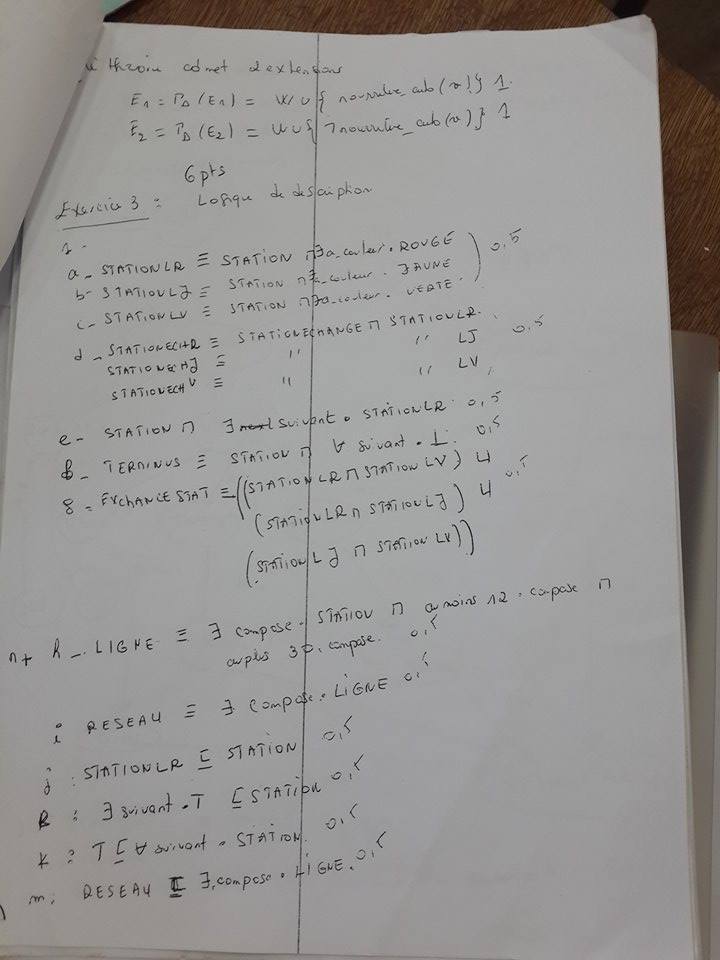 théorie admet 2 extensions
E1 = PΔ (E1) = W ∪ { nourriture_cub(v) } 1.
E2 = PΔ (E2) = W ∪ { ¬nourriture_cub(v) } 1
6 pts
Exercice 3 : Logique de description
1-
a - STATIONLR ≡ STATION ⊓ ∃a_couleur. ROUGE
b - STATIONLJ ≡ STATION ⊓ ∃a_couleur. JAUNE 0,5
c - STATIONLV ≡ STATION ⊓ ∃a_couleur. VERTE.
d - STATIONECHR ≡ STATIONECHANGE ⊓ STATIONLR.
STATIONECHJ ≡ " " LJ 0,5
STATIONECHV ≡ " " LV
e - STATION ⊓ ∃ suivant. STATIONLR 0,5
f - TERMINUS ≡ STATION ⊓ ∀ suivant. ⊥. 0,5
g - EXCHANGESTAT ≡ ((STATIONLR ⊓ STATIONLV) ⊔
(STATIONLR ⊓ STATIONLJ) ⊔ 0,5
(STATIONLJ ⊓ STATIONLV))
n + h - LIGNE ≡ ∃ compose. STATION ⊓ au moins 12. compose ⊓
au plus 30. compose. 0,5
i RESEAU ≡ ∃ compose. LIGNE 0,5
j : STATIONLR ⊑ STATION 0,5
k : ∃ suivant. T ⊑ STATION 0,5
k : T ⊑ ∀ suivant. STATION. 0,5
m : RESEAU ⊑ ∃ compose. LIGNE. 0,5